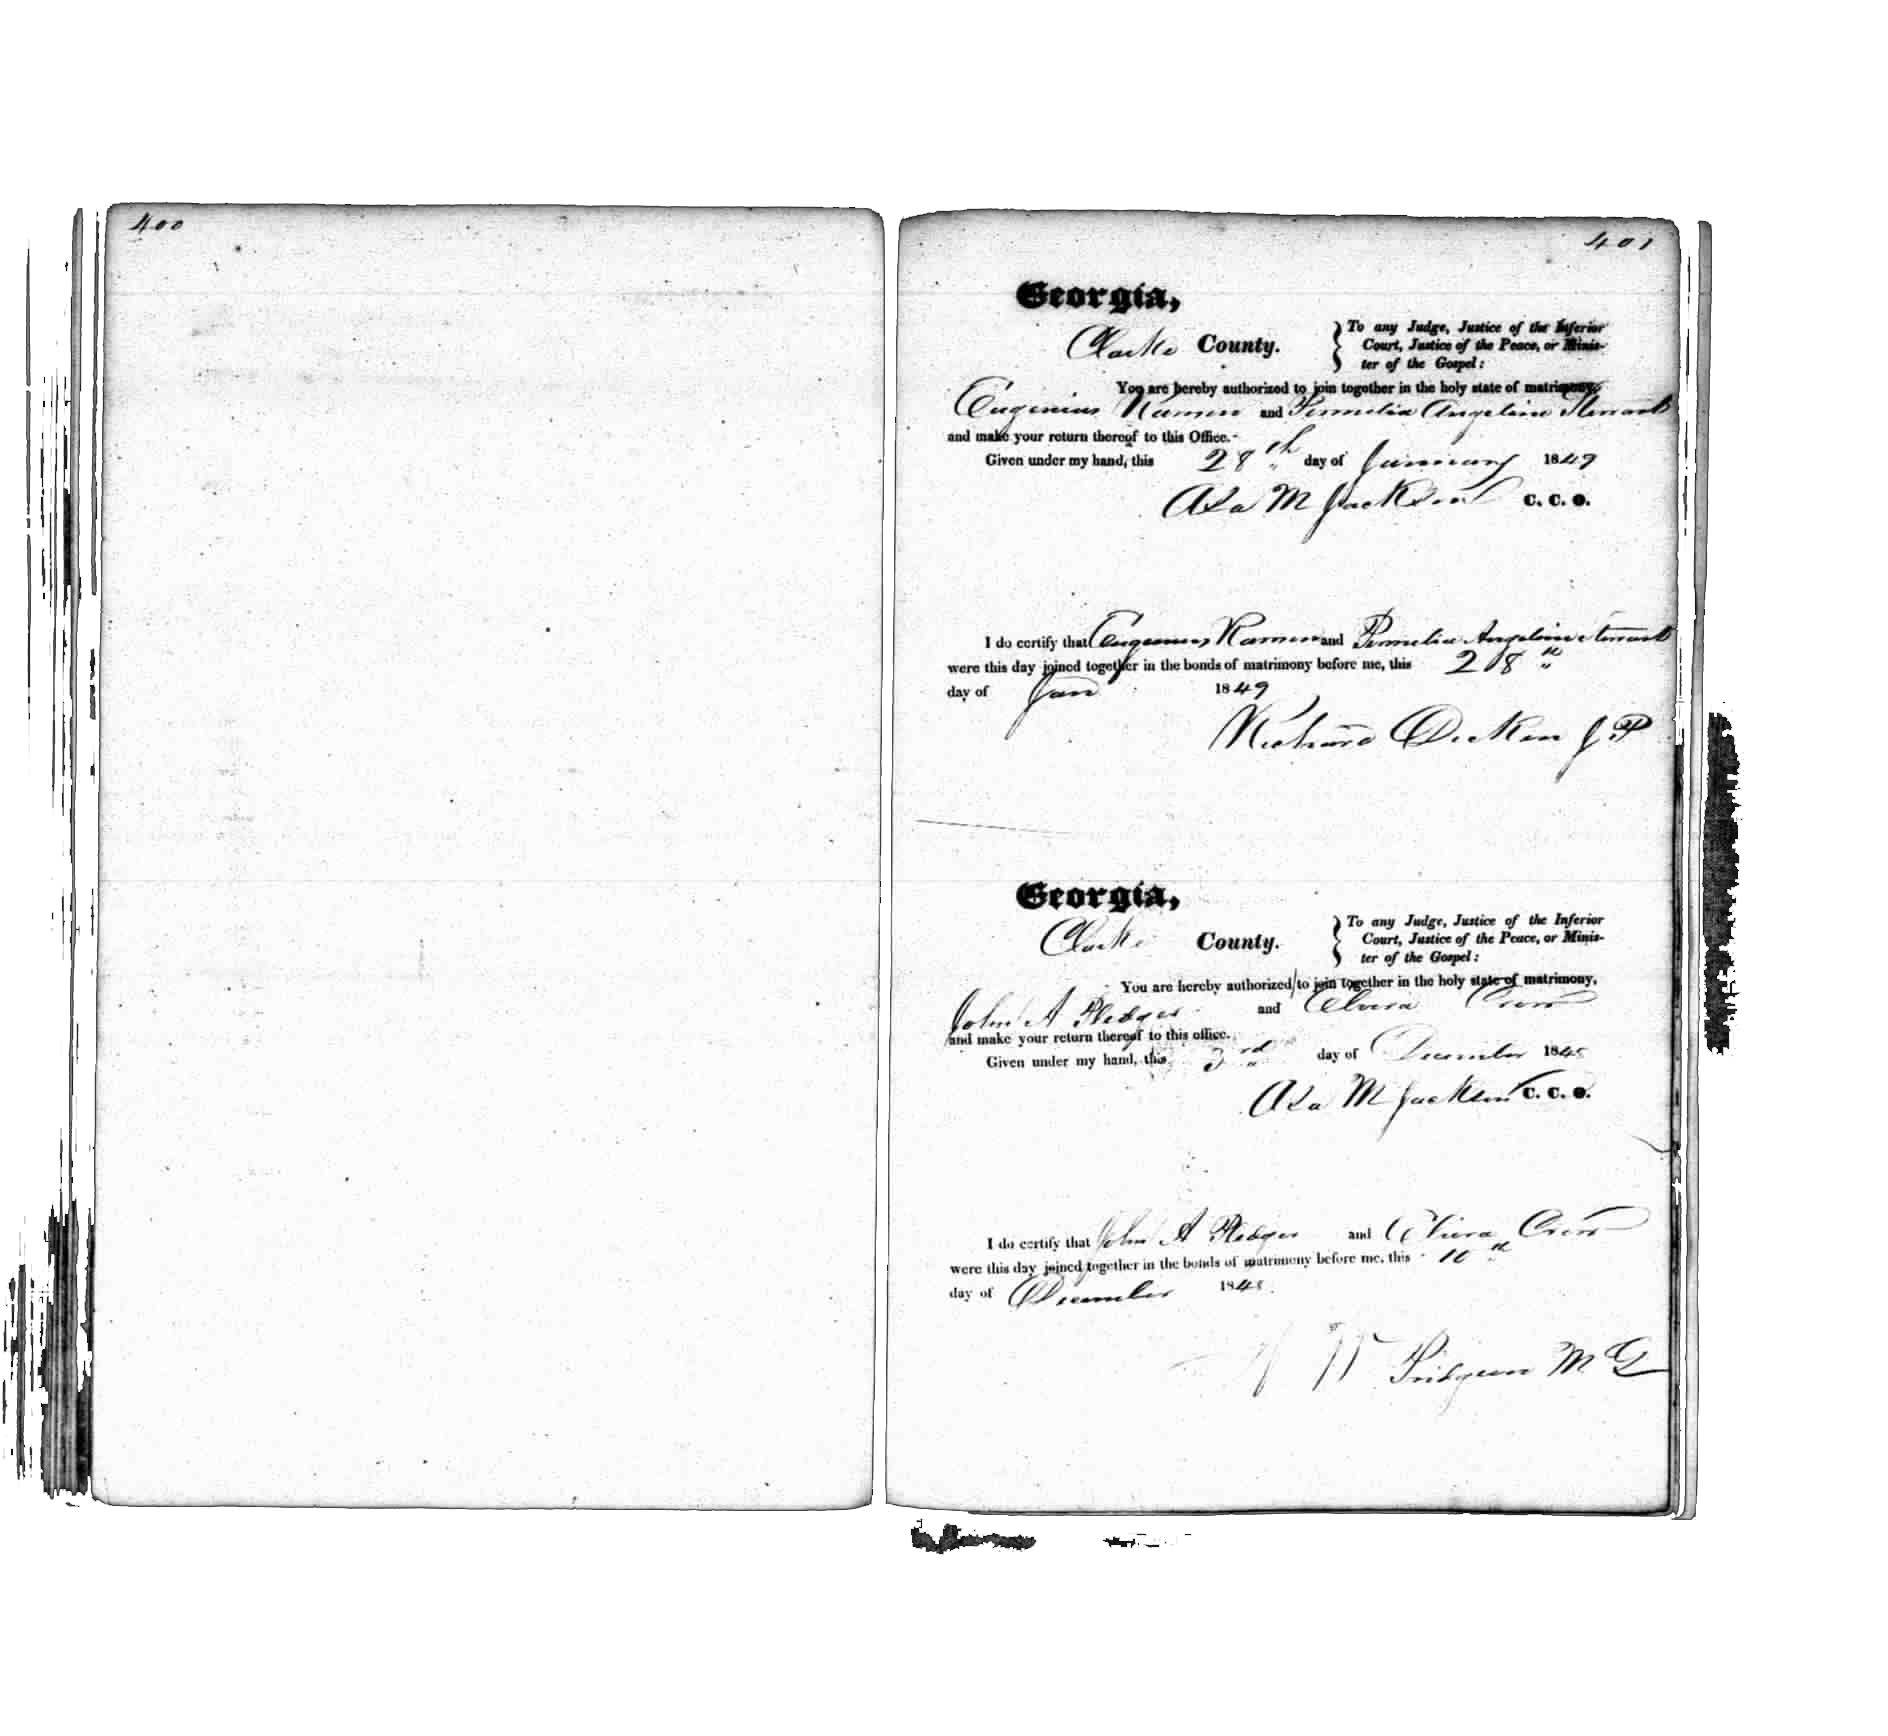 400
401
Georgia,
Clarke County.
To any Judge, Justice of the Inferior
Court, Justice of the Peace, or Minis-
ter of the Gospel:
You are hereby authorized to join together in the holy state of matrimony,
Eugenius and Permelia Angeline
and make your return thereof to this Office.
Given under my hand, this 28th day of January 1849
Asa M Jackson C. C. O.
I do certify that Eugenius and Permelia Angeline
were this day joined together in the bonds of matrimony before me, this 28th
day of Jan 1849
Richard Dicken J P
Georgia,
Clarke County.
To any Judge, Justice of the Inferior
Court, Justice of the Peace, or Minis-
ter of the Gospel:
You are hereby authorized to join together in the holy state of matrimony,
John A Pledger and Elvira Crow
and make your return thereof to this office.
Given under my hand, this 3rd day of December 184
Asa M Jackson C. C. O.
I do certify that John A Pledger and Elvira Crow
were this day joined together in the bonds of matrimony before me, this 10th
day of December 184
W Pridgeon M G